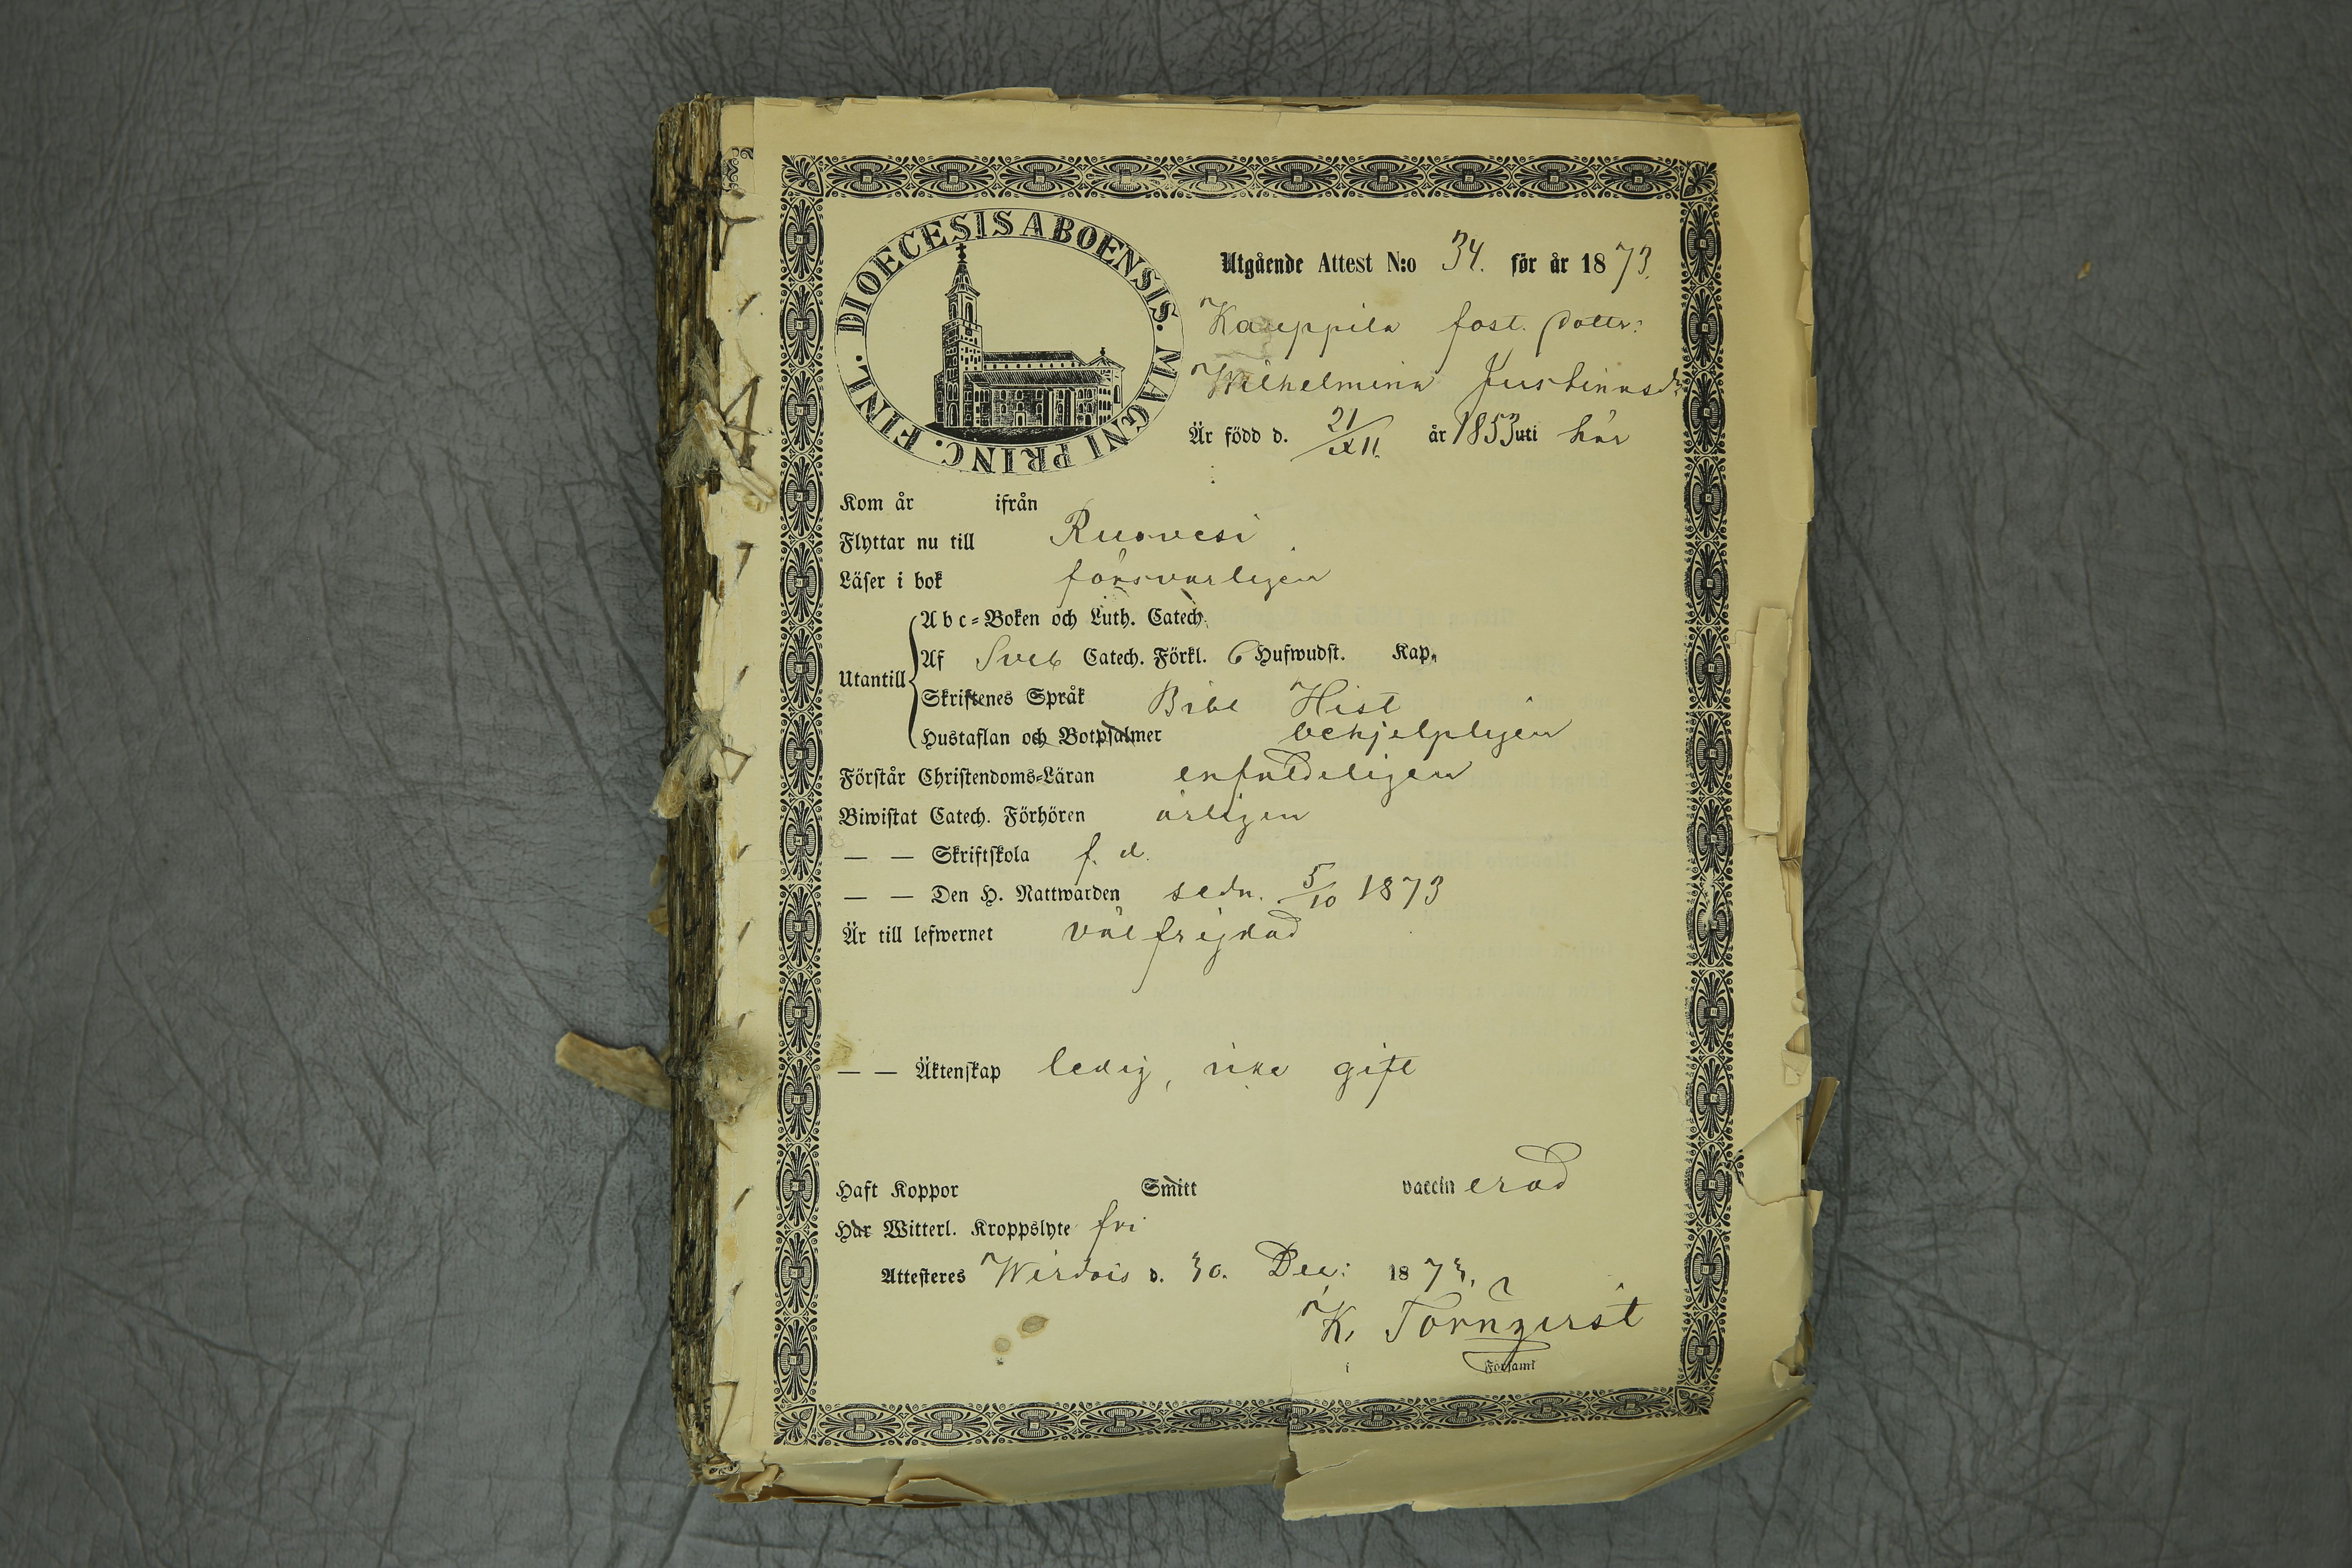 DIOECESIS ABOENSIS. MAGNI PRINC. FINL.
Utgående Attest N:o 34. för år 1873.
Kauppila fost. dotter:
Wilhelmina Justinasdr
Är född d. 21/XII. år 1853 uti här
Kom år ifrån
Flyttar nu till Ruovesi
Läser i bok försvarligen
Utantill
Abc-Boken och Luth. Catech.
Af Sveb Catech. Förkl. 6 Hufwudst. Kap.
Skriftenes Språk Bibl Hist
Hustaflan och Botpsalmer behjelpligen
Förstår Christendoms-Läran enfaldeligen
Biwistat Catech. Förhören årligen
— — Skriftskola f. d.
— — Den H. Nattwarden sedn. 5/10 1873
Är till lefwernet väl frejdad
— — Äktenskap ledig, icke gift
Haft Koppor Smitt vaccinerad
Har Witterl. Kroppslyte fri
Attesteres Wirdois d. 30. Dec: 1873.
K. Törnqvist
i Församl